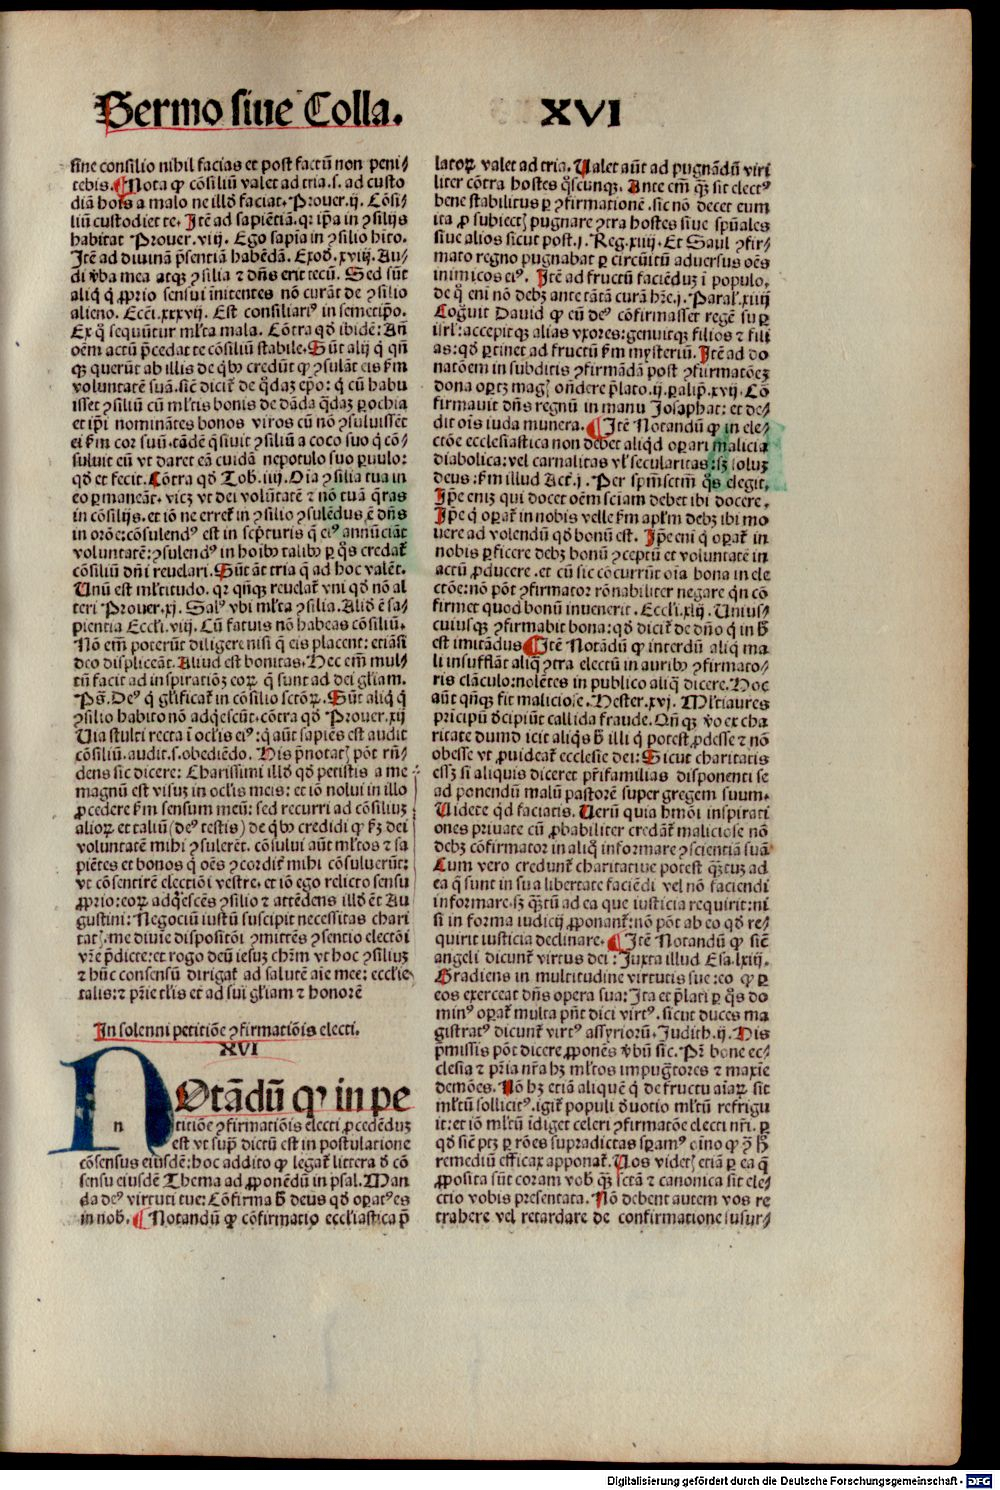 Sermo siue Colla. XVI
sine consilio nihil facias et post factū non peni⸗
tebis. ¶Nota ꝙ cōsiliū valet ad tria. s. ad custo
diā hoīs a malo ne illđ faciat. Prouer. ij. Cōsi⸗
liū custodiet te. Itē ad sapiētiā. qꝛ ip̄a in ꝯsilijs
habitat Prouer. viij. Ego sapīa in ꝯsilio hīto.
Itē ad diuinā p̄sentiā habēdā. Exođ. xviij. Au⸗
di v̄ba mea atqꝫ ꝯsilia ⁊ dn̄s erit tecū. Sed sūt
aliq̄ q̇ ꝓprio sensui īnitentes nō curāt de ꝯsilio
alieno. Ecci. xxxvij. Est consiliariꝰ in semetip̄o.
Ex q̇ sequūtur ml̄ta mala. Cōtra qđ ibidē: An̄
oēm actū p̄cedat te cōsiliū stabile. Sūt alij q̇ qn̄
qꝫ querūt ab illis de qͥbꝰ credūt ꝙ ꝯsulāt eis ẜm
voluntatē suā. sicē dicit̄ de qͦdaꝫ ep̄o: q̇ cū habu
isset ꝯsiliū cū ml̄tis bonis de dāda qͣdaꝫ ꝑochia
et ip̄i nominātes bonos viros cū nō ꝯsuluissēt
ei ẜm cor suū. tādē q̄siuit ꝯsiliū a coco suo q̇ cō⸗
suluit eū vt daret eā cuidā nepotulo suo ꝑuulo:
qđ et fecit. Cōtra qđ Tob. iiij. Oīa ꝯsilia tua in
eo ꝑmaneāt. vicꝫ vt dei volūtatē ⁊ nō tuā q̄ras
in cōsilijs. et iō ne erret̄ in ꝯsilio ꝯsulēdus ē dn̄s
in orōe: cōsulendꝰ est in scp̄turis q̄ eiꝰ annūciāt
voluntatē: ꝯsulendꝰ in hoībꝰ talibꝰ ꝑ q̄s credat̄
cōsiliū dn̄i reuelari. Sūt āt tria q̄ ad hoc valēt.
Unū est ml̄titudo. qꝛ qn̄qꝫ reuelat̄ vni qđ nō al
teri Prouer. xj. Salꝰ vbi ml̄ta ꝯsilia. Aliđ ē sa⸗
pientia Eccl̄i. viij. Cū fatuis nō habeas cōsiliū.
Nō em̄ poterūt diligere nisi q̄ eis placent: etiāsi
deo displiceāt. Aliud est bonitas. Hec em̄ mul⸗
tū facit ad inspiratiōꝫ eoꝝ q̇ sunt ad dei gl̄iam.
Ps̄. Deꝰ q̇ gl̄ificat̄ in cōsilio sctōꝝ. Sūt aliq̇ q̇
ꝯsilio habito nō adq̇escūt. cōtra qđ Prouer. xij
Uia stulti recta ī ocl̄is eiꝰ: q̇ aūt sapiēs est audit
cōsiliū. audit. s. obediēdo. His p̄notatꝭ pōt rn̄⸗
dens sic dicere: Charissimi illđ qđ petistis a me
magnū est visuꝫ in ocl̄is meis: et iō nolui in illo
ꝓcedere ẜm sensum meū: sed recurri ad cōsiliuꝫ
alioꝝ et taliū (deꝰ testis) de qͥbꝰ credidi ꝙ ẜꝫ dei
voluntatē mihi ꝯsulerēt. cōsului aūt ml̄tos ⁊ sa
piētes et bonos q̇ oēs ꝯcordit̄ mihi cōsuluerūt:
vt cōsentirē electiōi vestre. et iō ego relicto sensu
ꝓprio: eoꝝ adq̇escēs ꝯsilio ⁊ attēdens illđ ēt Au
gustini: Negociū iustū suscipit necessitas chari
tatꝭ. me diuīe dispositōi ꝯmittēs ꝯsentio electōi
vr̄e p̄dicte: et rogo deū iesuꝫ chr̄m vt hoc ꝯsiliuꝫ
⁊ hūc consensū dirigat̄ ad salutē aīe mee: eccl̄ie
talis: ⁊ pr̄ie tl̄is et ad sui gl̄iam ⁊ honorē
In solenni petitiōe ꝯfirmatiōis electi.
XVI
NOtādū ꝙ in pe
titiōe ꝯfirmatiōis electi ꝓcedēduꝫ
est vt sup̄ dictū est in postulatione
cōsensus eiusdē: hoc addito ꝙ legat̄ littera đ cō
sensu eiusdē Thema ad ꝓponēdū in psal. Man
da deꝰ virtuti tue: Cōfirma h̄ deus qđ oꝑatꝰ es
in nob̄. ¶Notandū ꝙ cōfirmatio eccl̄iastica p̄
latoꝝ valet ad tria. Ualet aūt ad pugnādū viri
liter cōtra hostes q̇scunqꝫ. Ante em̄ qꝫ sit electꝰ
bene stabilitus ꝑ ꝯfirmationē. sic nō decet eum
ita ꝓ subiectꝭ pugnare ꝯtra hostes siue sp̄uales
siue alios sicut post. j. Reg. xiiij. Et Saul ꝯfir⸗
mato regno pugnabat ꝑ circūitū aduersus oēs
inimicos eiꝰ. Itē ad fructū faciēduꝫ ī populo,
de q̇ eni nō debꝫ ante tātā curā hr̄e. j. Paral̄. xiiij
Cogūit Dauid ꝙ eū deꝰ cōfirmasset regē suꝑ
isrl̄: accepitqꝫ alias vxores: genuitqꝫ filios ⁊ fili
as: qđ ꝑtinet ad fructū ẜm mysteriū. Itē ad do
natōem in subditis ꝯfirmādā post ꝯfirmatōeꝫ
dona oꝑtꝫ magꝭ on̄dere p̄lato. ij. ꝑalip̄. xvij. Cō
firmauit dn̄s regnū in manu Josaphat: et de⸗
dit oīs iuda munera. ¶Itē Notandū ꝙ in ele⸗
ctōe ecclesiastica non debet aliqđ oꝑari malicia
diabolica: vel carnalitas vl̄ secularitas: sꝫ soluꝫ
deus: ẜm illud Act̄. j. Per sp̄msctm̄ q̄s elegit.
Ip̄e enīꝫ qui docet oēm sciam debet ibi docere.
Ip̄e q̇ oꝑat̄ in nobis velle ẜm apl̄m debꝫ ibi mo
uere ad volendū qđ bonū est. Ip̄e eni q̇ oꝑat̄ in
nobis ꝑficere debꝫ bonū ꝯceptū et voluntatē in
actū ꝓducere. et cū sic cōcurrūt oīa bona in ele
ctōe: nō pōt ꝯfirmator rōnabiliter negare qͥn cō
firmet quod bonū inuenerit. Eccl̄i. xlij. Unius⸗
cuiusqꝫ ꝯfirmabit bona: qđ dicit̄ de dn̄o q̇ in h̄
est imitādus ¶Itē Notādū ꝙ interdū aliq̇ ma
li insufflāt aliq̄ ꝯtra electū in auribꝰ ꝯfirmato⸗
ris clāculo: nolētes in publico aliq̇ dicere. Hoc
aūt qn̄qꝫ fit maliciose. Hester. xvj. Ml̄ti aures
prīcipū đcipiūt callida fraude. Qn̄qꝫ v̄o ex cha
ritate dum dicit aliq̇s h̄ illi q̇ potest ꝓdesse ⁊ nō
obesse vt ꝓuideat̄ ecclesie dei: Sicut charitatis
essꝫ si aliquis diceret pr̄ifamilias disponenti se
ad ponendū malū pastorē super gregem suum.
Uidete qđ faciatis. Uerū quia hmōi inspirati
ones priuate cū ꝓbabiliter credāt̄ maliciose nō
debꝫ cōfirmator in aliq̇ informare ꝯscientiā suā
Cum vero credunt̄ charitatiue potest qͣꝫtuꝫ ad
ea q̄ sunt in sua libertate faciēdi vel nō faciendi
informare. sꝫ qͣꝫtū ad ea que iusticia requirit: ni
si in forma iudicij ꝓponant̄: nō pōt ab eo qđ re⸗
quirit iusticia declinare. ¶Itē Notandū ꝙ sicē
angeli dicunt̄ virtus dei: Juxta illud Esa. lxiij.
Gradiens in multitudine virtutis sue: eo ꝙ ꝑ
eos exerceat dn̄s opera sua: Ita et p̄lati ꝑ q̄s do
minꝰ oꝑat̄ multa pn̄t dici virtꝰ. sicut duces ma
gistratꝰ dicunt̄ virtꝰ assyriorū. Judith. ij. His
p̄missis pōt dicere ꝓponēs v̄bū sic. Pr̄ bone ec⸗
clesia ⁊ pr̄ia nr̄a hꝫ ml̄tos impugtōres ⁊ maxīe
demōes. Nō hꝫ etiā aliquē q̇ de fructu aīaꝝ sit
ml̄tū sollicitꝰ. igit̄ populi đuotio ml̄tū refrigu
it: et iō ml̄tū īdiget celeri ꝯfirmatōe electi nr̄i. ꝑ
qđ sicē ptꝫ ꝑ rōes supradictas sꝑamꝰ oīno ꝙ ꝯ h̄
remediū efficax apponat̄. Uos videtꝭ etiā ꝑ ea q̄
ꝓposita sūt coram vob̄ qꝫ sctā ⁊ canonica sit ele⸗
ctio vobis presentata. Nō debent autem vos re
trahere vel retardare de confirmatione susur⸗
Digitalisierung gefördert durch die Deutsche Forschungsgemeinschaft - DFG